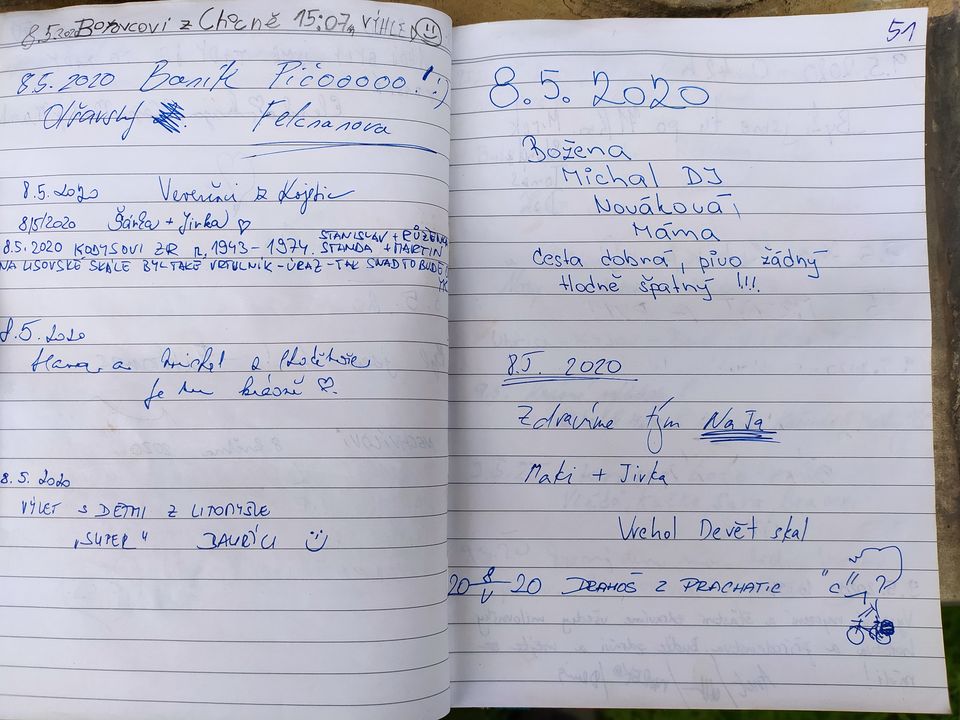 8.5.2020 Borovcovi z Chocně 15:07, VÝHLED
8.5.2020 Baník Pičooooo!!
8.5.2020 z Kojetic
8/5/2020 Šárka + Jirka ♡
STANISLAV + RŮŽENA
8.5.2020 KODYSOVI ZR 1943-1974. STANDA + MARTIN
NA LISOVSKÉ SKÁLE BYL TAKÉ VRTULNÍK-ÚRAZ-TAK SNAD TO BUDE
8.5.2020
Hana a Michal z
je tu krásně ♡.
8.5.2020
VÝLET S DĚTMI Z LITOMYŠLE
"SUPER"
51
8.5.2020
Božena
Michal DJ
Nováková,
Máma
Cesta dobrá, pivo žádný
Hodně špatný !!!.
8.5. 2020
Zdravíme tým NaJa
Maki + Jirka
Vrchol Devět skal
20 8/V 20 DRAHOŠ Z PRACHATIC